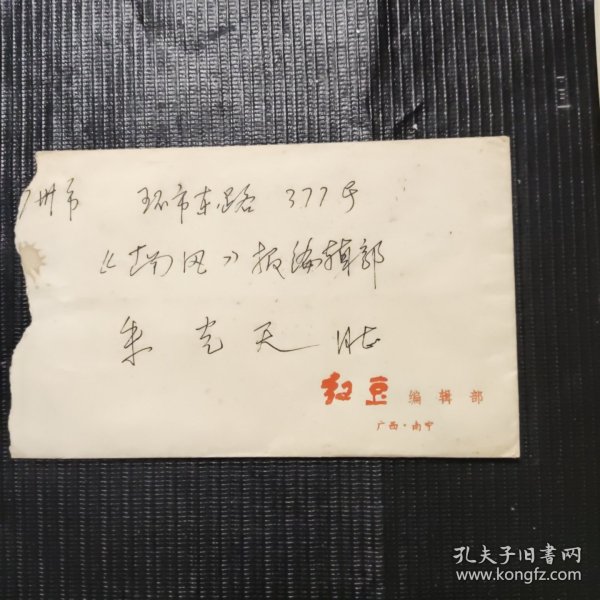 广州市 环市东路 377号
《南风》报编辑部
朱光天 同志
红豆 编辑部
广西·南宁
孔夫子旧书网
www.kongfz.com